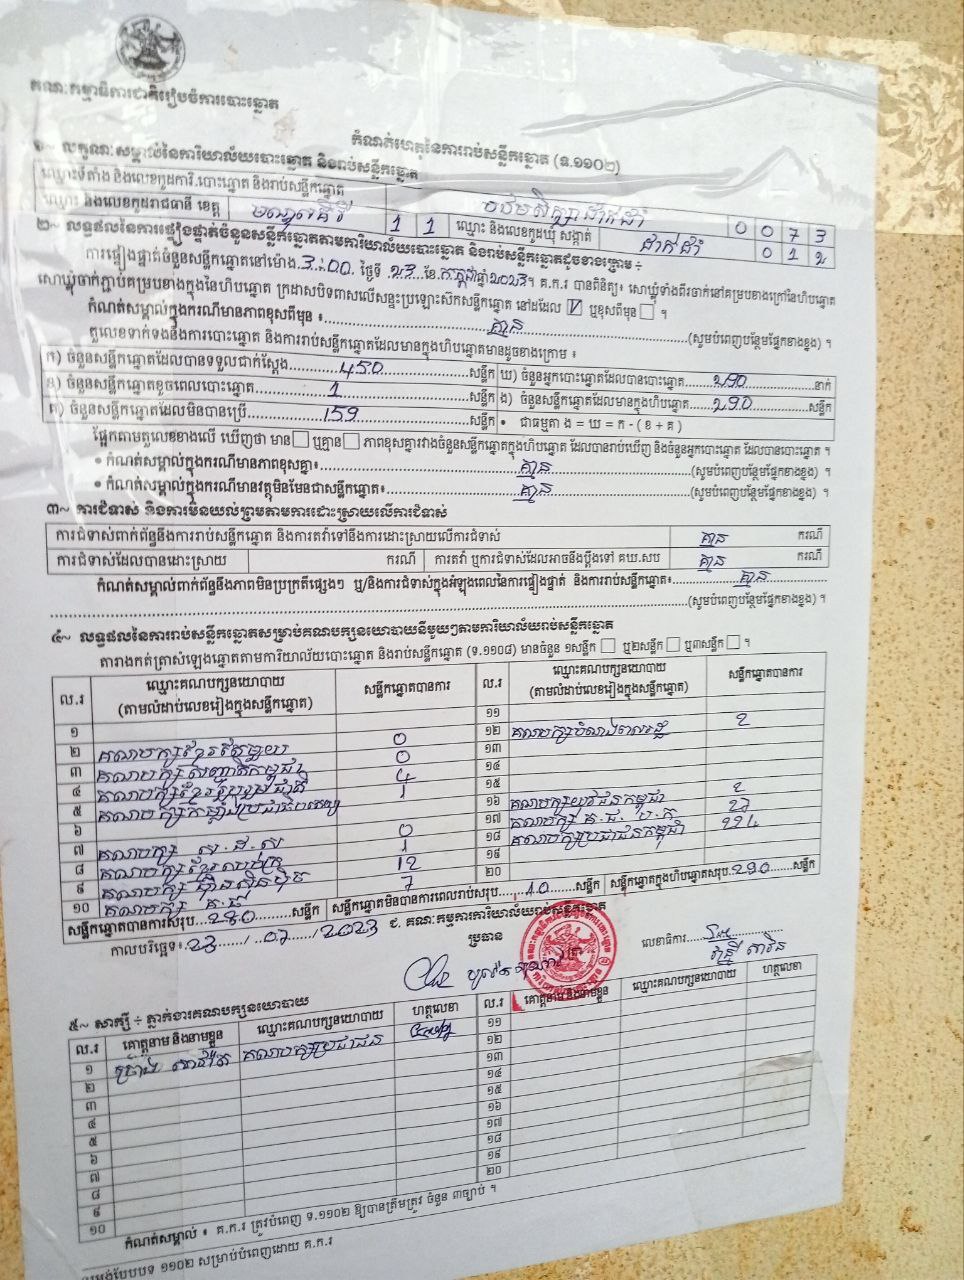 គណៈកម្មាធិការជាតិរៀបចំការបោះឆ្នោត
កំណត់ហេតុនៃការរាប់សន្លឹកឆ្នោត (ទ.១១០២)
១~ លក្ខណៈសម្គាល់នៃការិយាល័យបោះឆ្នោត និងរាប់សន្លឹកឆ្នោត
ឈ្មោះទីតាំង និងលេខកូដការិ.បោះឆ្នោត និងរាប់សន្លឹកឆ្នោត បឋមសិក្សាដាក់ដាំ 0 0 7 3
ឈ្មោះ និងលេខកូដរាជធានី ខេត្ត មណ្ឌលគិរី 1 1 ឈ្មោះ និងលេខកូដឃុំ សង្កាត់ ដាក់ដាំ 0 1 2
២~ លទ្ធផលនៃការផ្ទៀងផ្ទាត់ចំនួនសន្លឹកឆ្នោតតាមការិយាល័យបោះឆ្នោត និងរាប់សន្លឹកឆ្នោតដូចខាងក្រោម ÷
ការផ្ទៀងផ្ទាត់ចំនួនសន្លឹកឆ្នោតនៅម៉ោង 3:00 ថ្ងៃទី 23 ខែ កក្កដា ឆ្នាំ 2023។ គ.ក.រ បានពិនិត្យ៖ សោឃ្លុំទាំងពីរចាក់នៅគម្របខាងក្រៅនៃហិបឆ្នោត
សោឃ្លុំចាក់ភ្ជាប់គម្របខាងក្នុងនៃហិបឆ្នោត ក្រដាសបិទពាសលើសន្ទះប្រឡោះសឹកសន្លឹកឆ្នោត នៅដដែល ☑ ឬខុសពីមុន ☐ ។
កំណត់សម្គាល់ក្នុងករណីមានភាពខុសពីមុន ៖ គ្មាន (សូមបំពេញបន្ថែមផ្នែកខាងខ្នង) ។
តួលេខទាក់ទងនឹងការបោះឆ្នោត និងការរាប់សន្លឹកឆ្នោតដែលមានក្នុងហិបឆ្នោតមានដូចខាងក្រោម ៖
ក) ចំនួនសន្លឹកឆ្នោតដែលបានទទួលជាក់ស្តែង 450 សន្លឹក ឃ) ចំនួនអ្នកបោះឆ្នោតដែលបានបោះឆ្នោត 290 នាក់
ខ) ចំនួនសន្លឹកឆ្នោតខូចពេលបោះឆ្នោត 1 សន្លឹក ង) ចំនួនសន្លឹកឆ្នោតដែលមានក្នុងហិបឆ្នោត 290 សន្លឹក
គ) ចំនួនសន្លឹកឆ្នោតដែលមិនបានប្រើ 159 សន្លឹក • ជាធម្មតា ង = ឃ = ក - ( ខ + គ )
ផ្អែកតាមតួលេខខាងលើ ឃើញថា មាន ☐ ឬគ្មាន ☐ ភាពខុសគ្នារវាងចំនួនសន្លឹកឆ្នោតក្នុងហិបឆ្នោត ដែលបានរាប់ឃើញ និងចំនួនអ្នកបោះឆ្នោត ដែលបានបោះឆ្នោត ។
• កំណត់សម្គាល់ក្នុងករណីមានភាពខុសគ្នា៖ គ្មាន (សូមបំពេញបន្ថែមផ្នែកខាងខ្នង) ។
• កំណត់សម្គាល់ក្នុងករណីមានវត្ថុមិនមែនជាសន្លឹកឆ្នោត៖ គ្មាន (សូមបំពេញបន្ថែមផ្នែកខាងខ្នង) ។
៣~ ការជំទាស់ និងការមិនយល់ព្រមតាមការដោះស្រាយលើការជំទាស់
ការជំទាស់ពាក់ព័ន្ធនឹងការរាប់សន្លឹកឆ្នោត និងការតវ៉ាទៅនឹងការដោះស្រាយលើការជំទាស់ គ្មាន ករណី
ការជំទាស់ដែលបានដោះស្រាយ ករណី ការតវ៉ា ឬការជំទាស់ដែលអាចនឹងប្តឹងទៅ គឃ.សប គ្មាន ករណី
កំណត់សម្គាល់ពាក់ព័ន្ធនឹងភាពមិនប្រក្រតីផ្សេងៗ ឬ/និងការជំទាស់ក្នុងអំឡុងពេលនៃការផ្ទៀងផ្ទាត់ និងការរាប់សន្លឹកឆ្នោត៖ គ្មាន
(សូមបំពេញបន្ថែមផ្នែកខាងខ្នង) ។
៤~ លទ្ធផលនៃការរាប់សន្លឹកឆ្នោតសម្រាប់គណបក្សនយោបាយនីមួយៗតាមការិយាល័យរាប់សន្លឹកឆ្នោត
តារាងកត់ត្រាសំឡេងឆ្នោតតាមការិយាល័យបោះឆ្នោត និងរាប់សន្លឹកឆ្នោត (ទ.១១០៨) មានចំនួន ១សន្លឹក ☐ ឬ២សន្លឹក ☐ ឬ៣សន្លឹក ☐ ។
ល.រ ឈ្មោះគណបក្សនយោបាយ (តាមលំដាប់លេខរៀងក្នុងសន្លឹកឆ្នោត) សន្លឹកឆ្នោតបានការ ល.រ ឈ្មោះគណបក្សនយោបាយ (តាមលំដាប់លេខរៀងក្នុងសន្លឹកឆ្នោត) សន្លឹកឆ្នោតបានការ
១ គណបក្សខ្មែរតែមួយ 0
២ គណបក្សសញ្ជាតិកម្ពុជា 0
៣ គណបក្សខ្មែររួបរួមជាតិ 4
៤ គណបក្សកម្លាំងប្រជាធិបតេយ្យ 1
៥
៦ គណបក្ស ស.ជ.ស 0
៧ គណបក្ស 1
៨ គណបក្សហ៊្វុនស៊ិនប៉ិច 12
៩ គណបក្ស 7
១០
១១ គណបក្ស 2
១២
១៣
១៤
១៥ គណបក្សយុវជនកម្ពុជា 2
១៦ គណបក្ស
១៧ គណបក្សប្រជាជនកម្ពុជា
១៨
១៩
២០
សន្លឹកឆ្នោតបានការសរុប 280 សន្លឹក សន្លឹកឆ្នោតមិនបានការពេលរាប់សរុប 10 សន្លឹក សន្លឹកឆ្នោតក្នុងហិបឆ្នោតសរុប 290 សន្លឹក
កាលបរិច្ឆេទ៖ 23 / 07 / 2023 ជ. គណៈកម្មការការិយាល័យរាប់សន្លឹកឆ្នោត
ប្រធាន លេខាធិការ
៥~ សាក្សី ÷ ភ្នាក់ងារគណបក្សនយោបាយ
ល.រ គោត្តនាម និងនាមខ្លួន ឈ្មោះគណបក្សនយោបាយ ហត្ថលេខា ល.រ គោត្តនាម និងនាមខ្លួន ឈ្មោះគណបក្សនយោបាយ ហត្ថលេខា
១ គណបក្សប្រជាជន ១១
២ ១២
៣ ១៣
៤ ១៤
៥ ១៥
៦ ១៦
៧ ១៧
៨ ១៨
៩ ១៩
១០ ២០
កំណត់សម្គាល់ ៖ គ.ក.រ ត្រូវបំពេញ ទ.១១០២ ឱ្យបានត្រឹមត្រូវ ចំនួន ៣ច្បាប់ ។
ទម្រង់បែបបទ ១១០២ សម្រាប់បំពេញដោយ គ.ក.រ